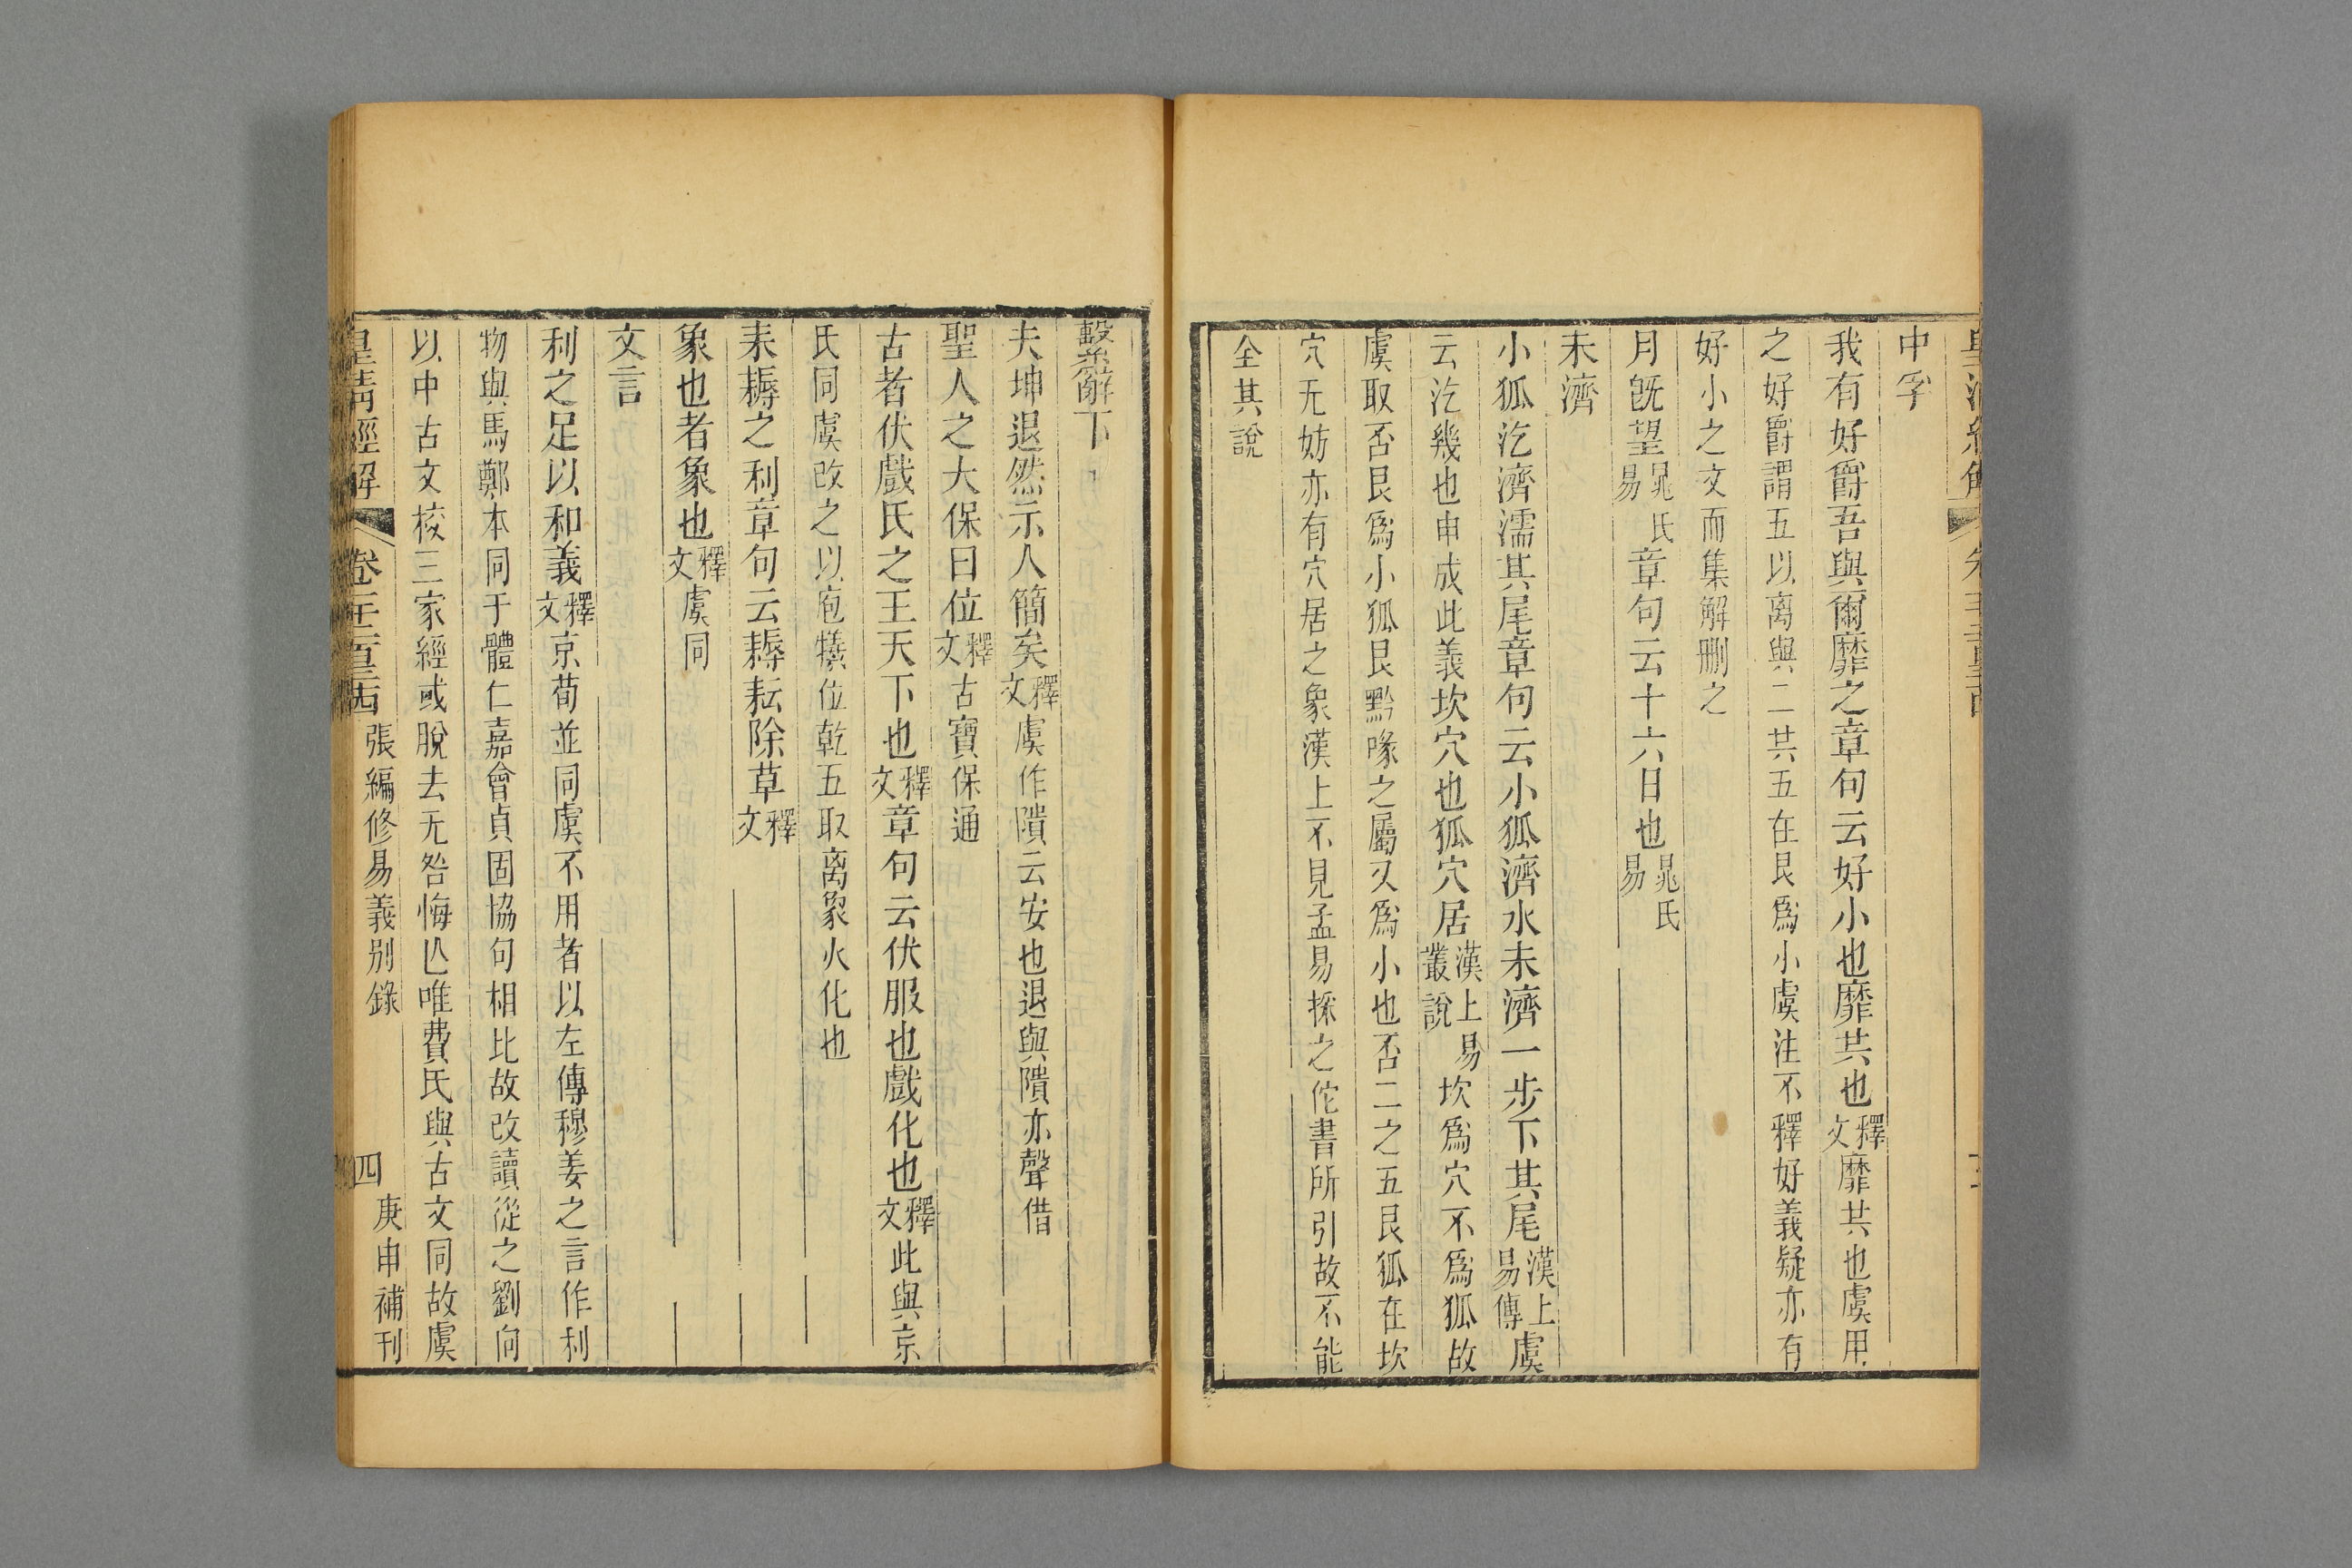 中孚
我有好爵吾與爾靡之章句云好小也靡共也釋文靡共也虞用
之好爵謂五以离與二共五在艮爲小虞注不釋好義疑亦有
好小之文而集解刪之
月旣望晁氏易章句云十六日也晁氏易
未濟
小狐汔濟濡其尾章句云小狐濟水未濟一步下其尾漢上易傳虞
云汔幾也申成此義坎穴也狐穴居漢上易叢說坎爲穴不爲狐故
虞取否艮爲小狐艮黔喙之屬又爲小也否二之五艮狐在坎
穴无妨亦有穴居之象漢上不見孟易探之佗書所引故不能
全其說
繫辭下
夫坤退然示人簡矣釋文虞作隤云安也退與隤亦聲借
聖人之大保曰位釋文古寶保通
古者伏戲氏之王天下也釋文章句云伏服也戲化也釋文此與京
氏同虞改之以庖犧位乾五取离象火化也
耒耨之利章句云耨耘除草釋文
象也者象也釋文虞同
文言
利之足以和義釋文京荀並同虞不用者以左傳穆姜之言作利
物與馬鄭本同于體仁嘉會貞固協句相比故改讀從之劉向
以中古文校三家經或脫去无咎悔亾唯費氏與古文同故虞
皇清經解 卷一千二百三十四 張編修易義別錄 四 庚申補刊